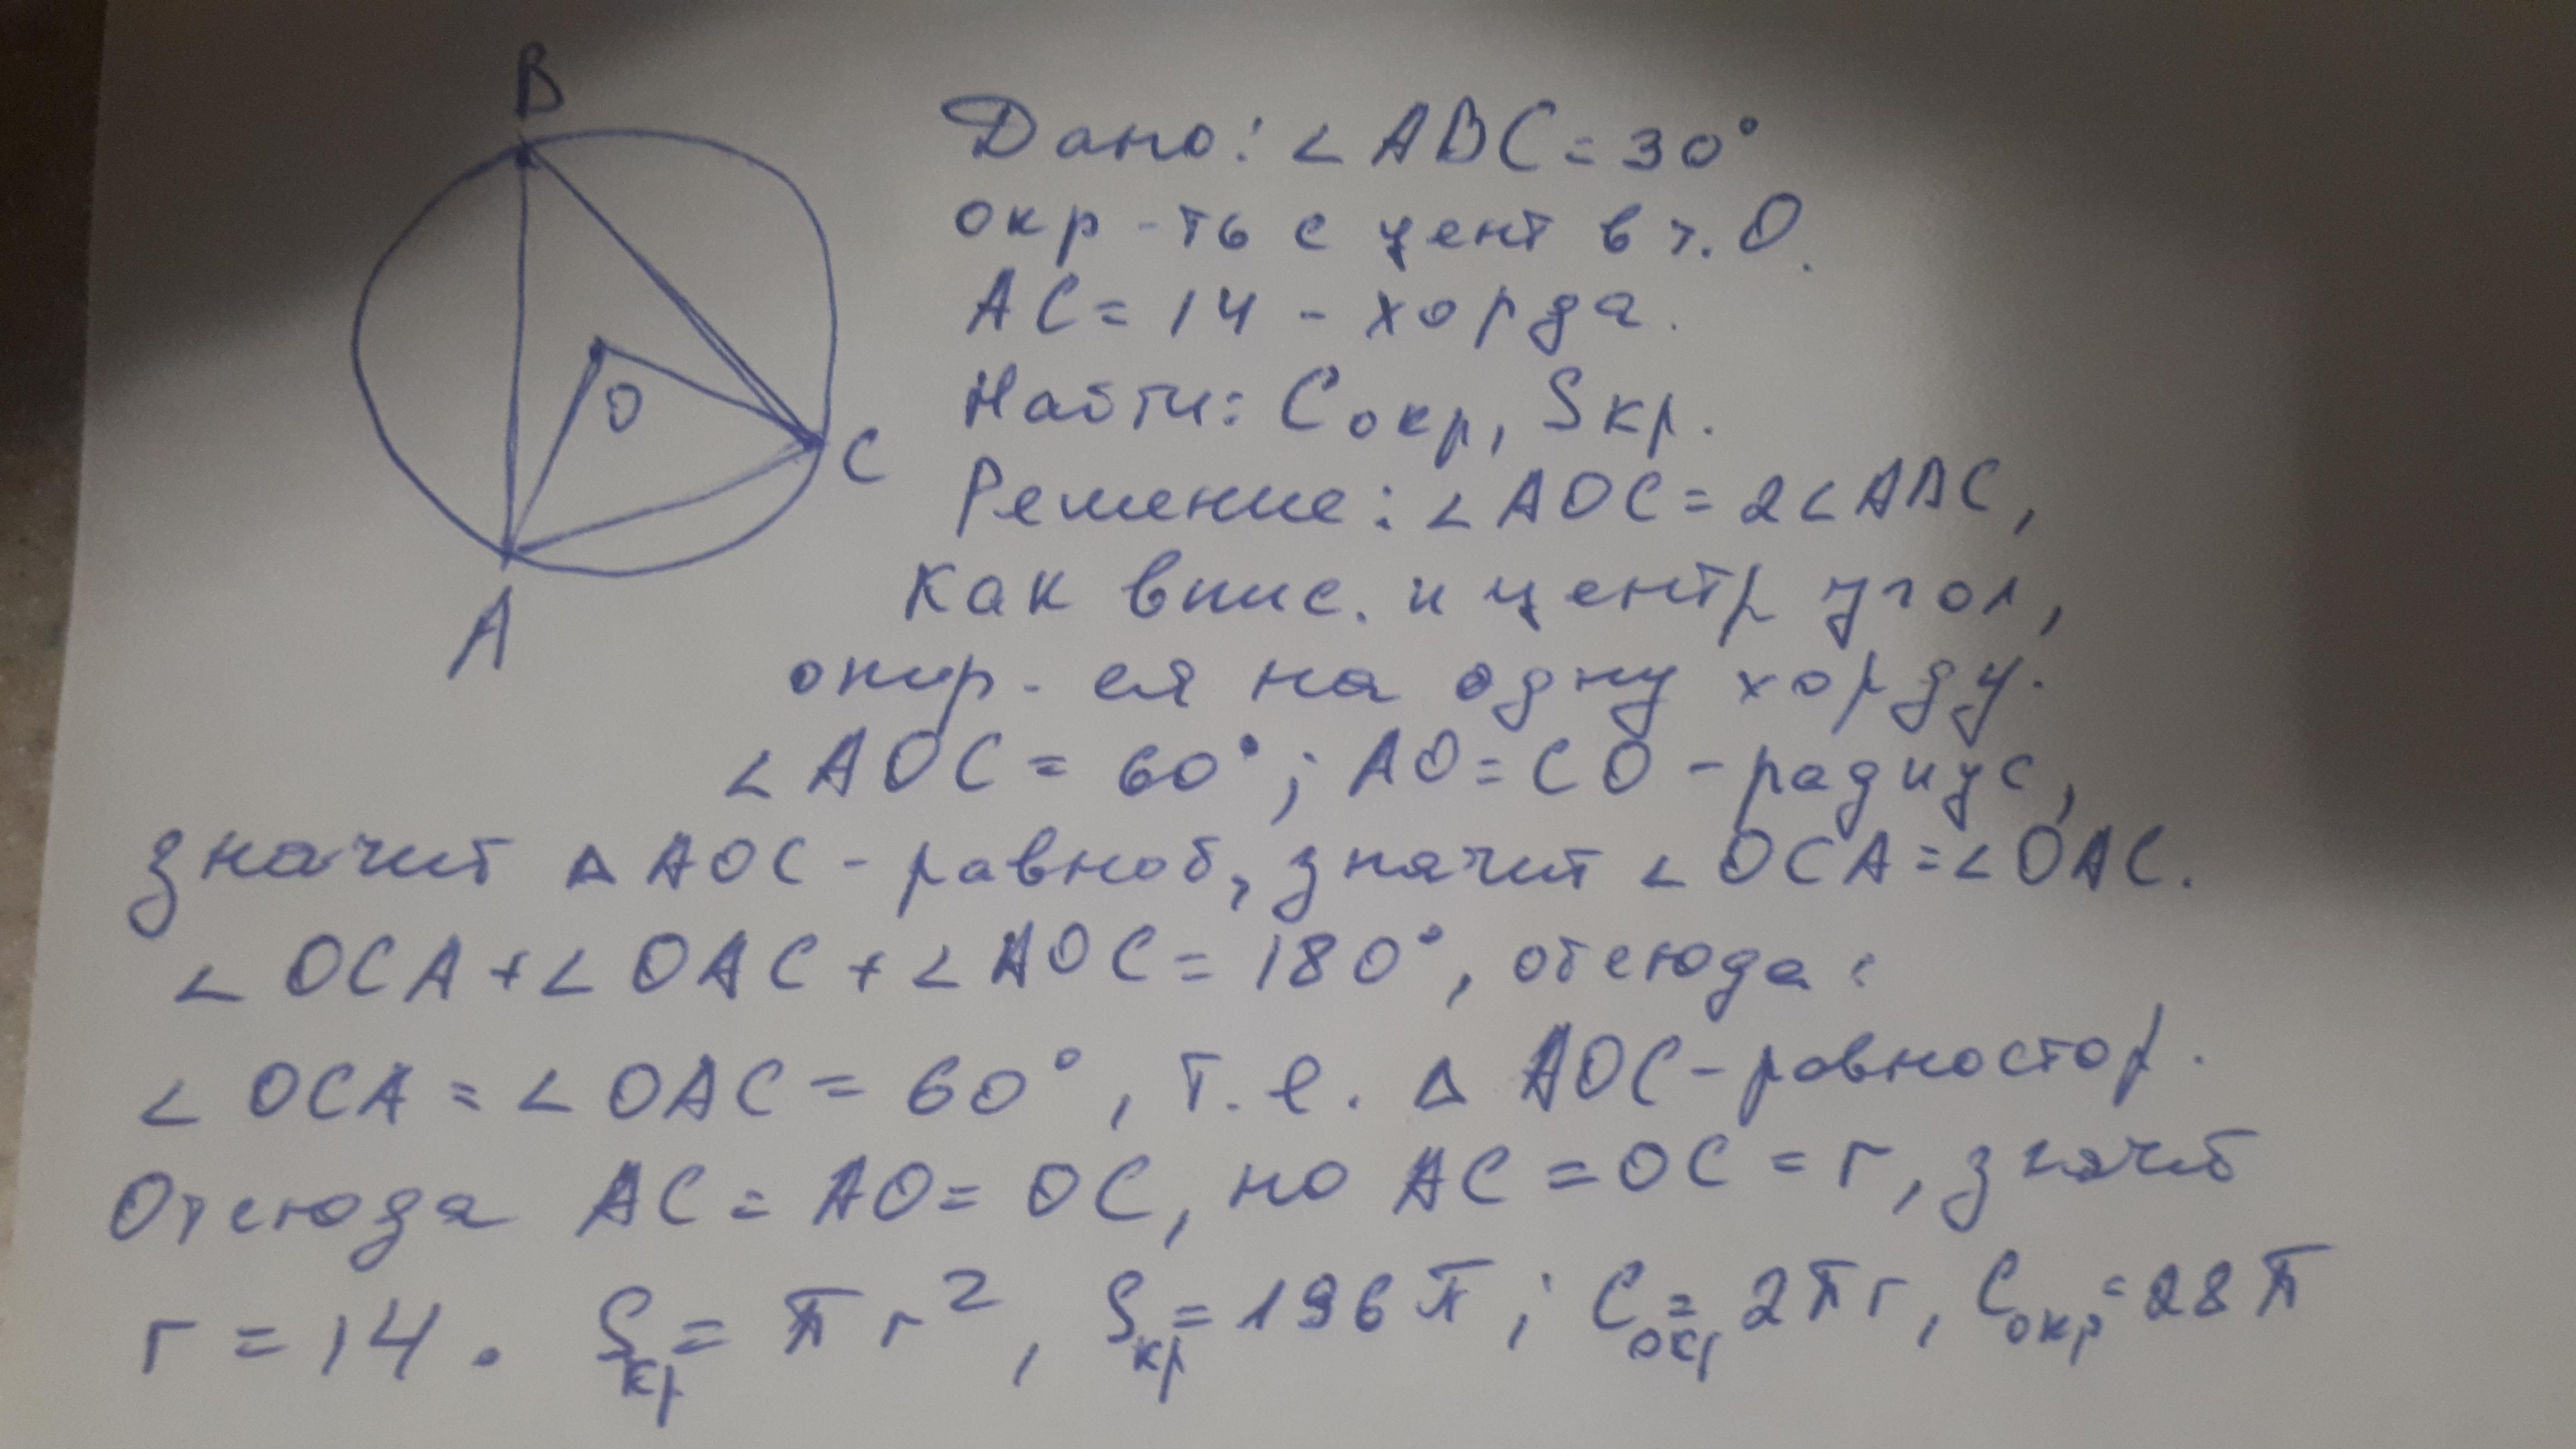 B
O
C
A
Дано: ∠ABC=30°
окр-ть с цент в т. O.
AC=14 - хорда.
Найти: Cокр, Sкр.
Решение: ∠AOC=2∠ABC,
как впис. и центр угол,
опир-ся на одну хорду.
∠AOC=60°; AO=CO-радиус,
значит △AOC-равноб, значит ∠OCA=∠OAC.
∠OCA+∠OAC+∠AOC=180°, отсюда:
∠OCA=∠OAC=60°, т.е. △AOC-равностор.
Отсюда AC=AO=OC, но AC=OC=r, значит
r=14. Sкр=πr², Sкр=196π; Cокр=2πr, Cокр=28π